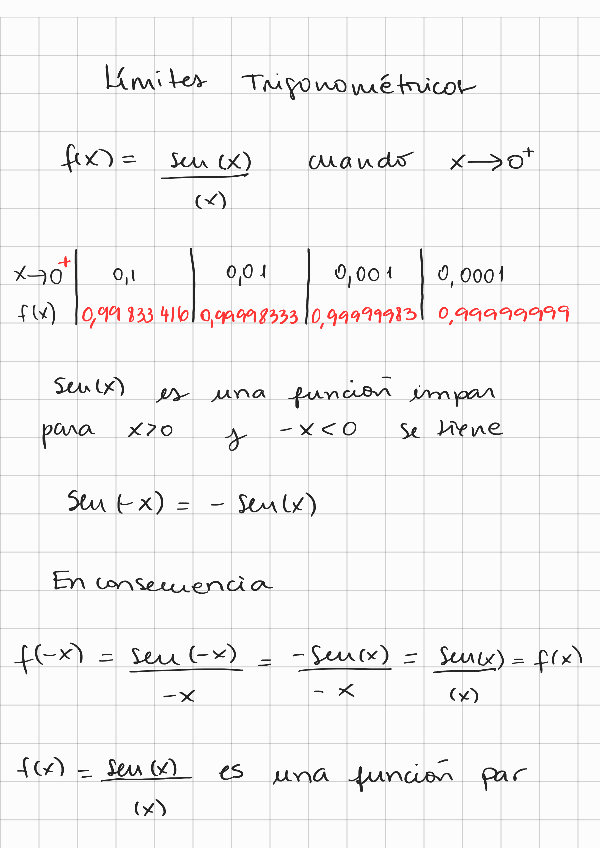 Límites Trigonométricos
f(x) = sen(x)/(x) cuando x→0⁺
x→0⁺ | 0,1 | 0,01 | 0,001 | 0,0001
f(x) | 0,99833416 | 0,99998333 | 0,99999983 | 0,99999999
sen(x) es una función impar
para x>0 y -x<0 se tiene
sen(-x) = -sen(x)
En consecuencia
f(-x) = sen(-x)/-x = -sen(x)/-x = sen(x)/(x) = f(x)
f(x) = sen(x)/(x) es una función par